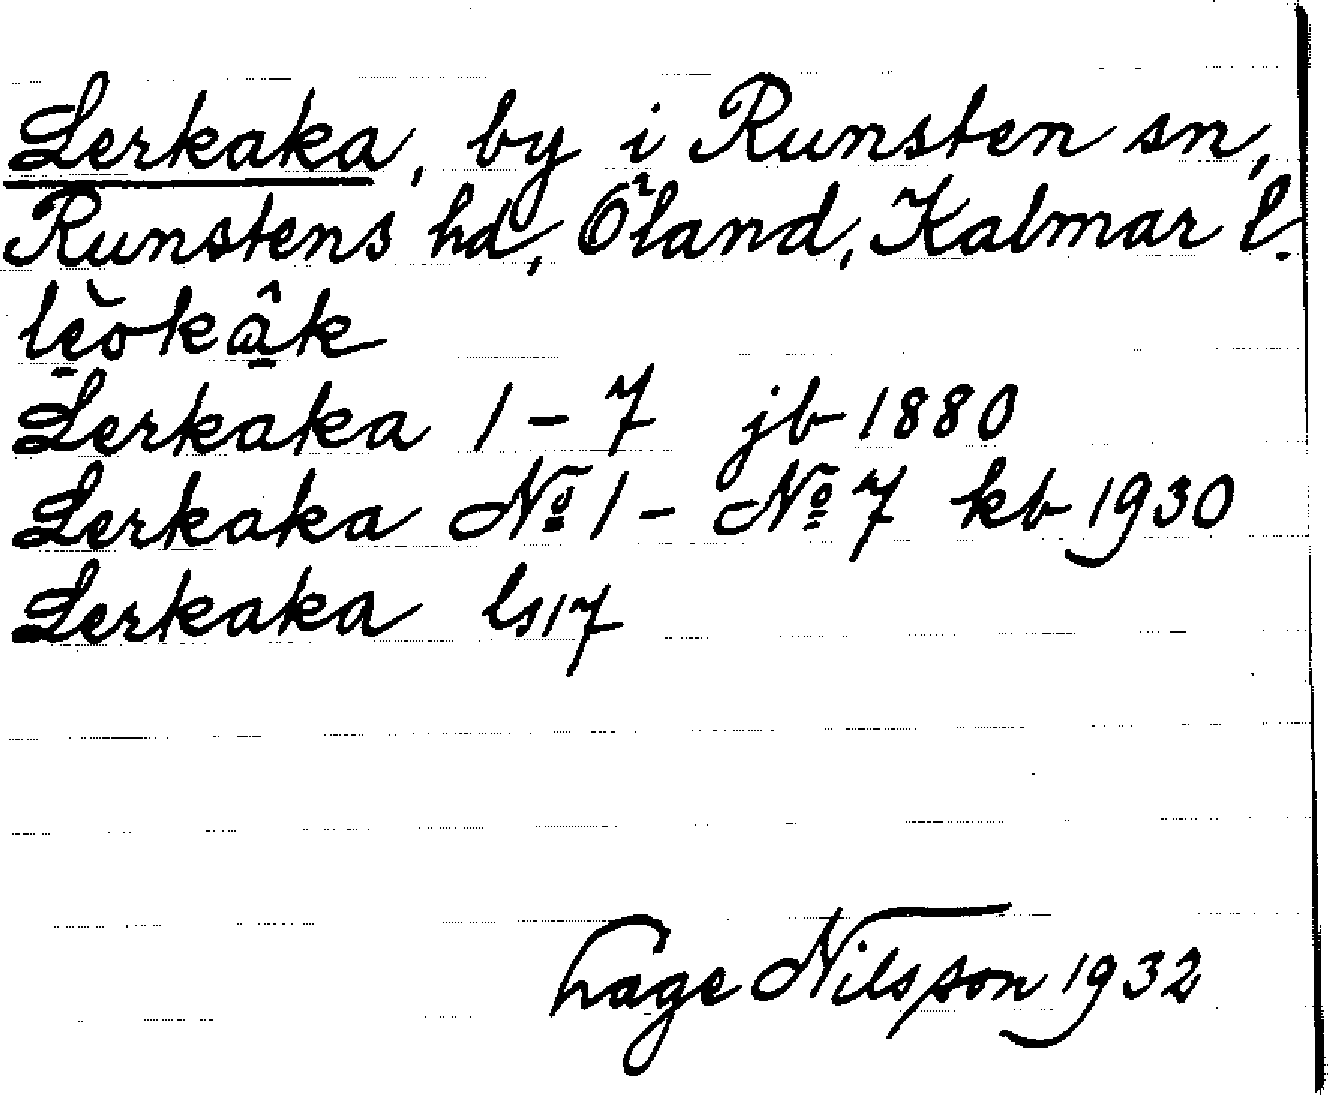 Lerkaka, by i Runsten sn,
Runstens hd, Öland, Kalmar l.
Lerkaka 1-7 jb 1880
Lerkaka No 1 - No 7 kb 1930
Lerkaka ls 17
Hage Nilsson 1932